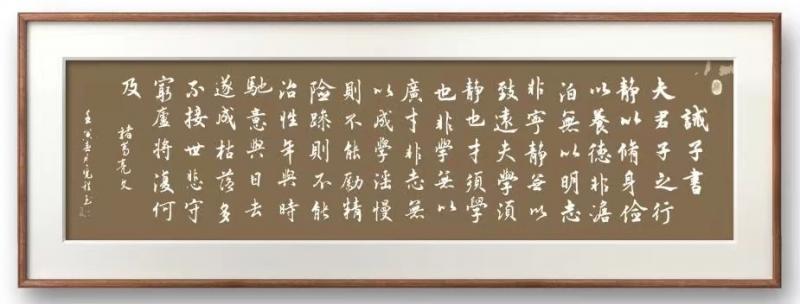 誡子書
夫君子之行
静以脩身儉
以養德非澹
泊無以明志
非寧静無以
致遠夫學須
静也才須學
也非學無以
廣才非志無
以成學淫慢
則不能勵精
險躁則不能
治性年與時
馳意與日去
遂成枯落多
不接世悲守
窮廬將復何
及
諸葛亮文
壬寅春月